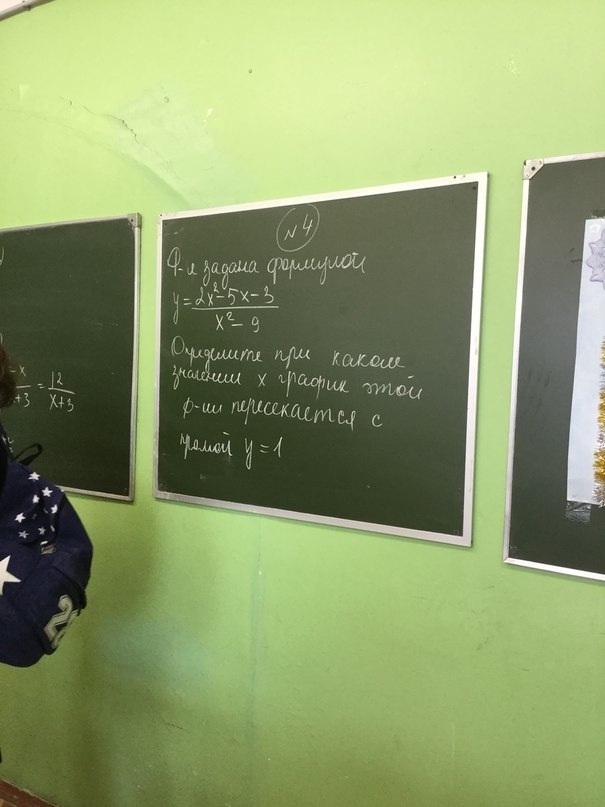 №4
Ф-я задана формулой
y = 2x²-5x-3 / x²-9
Определите при каком
значении x график этой
ф-ии пересекается с
прямой y=1
x / +3 = 12 / x+3